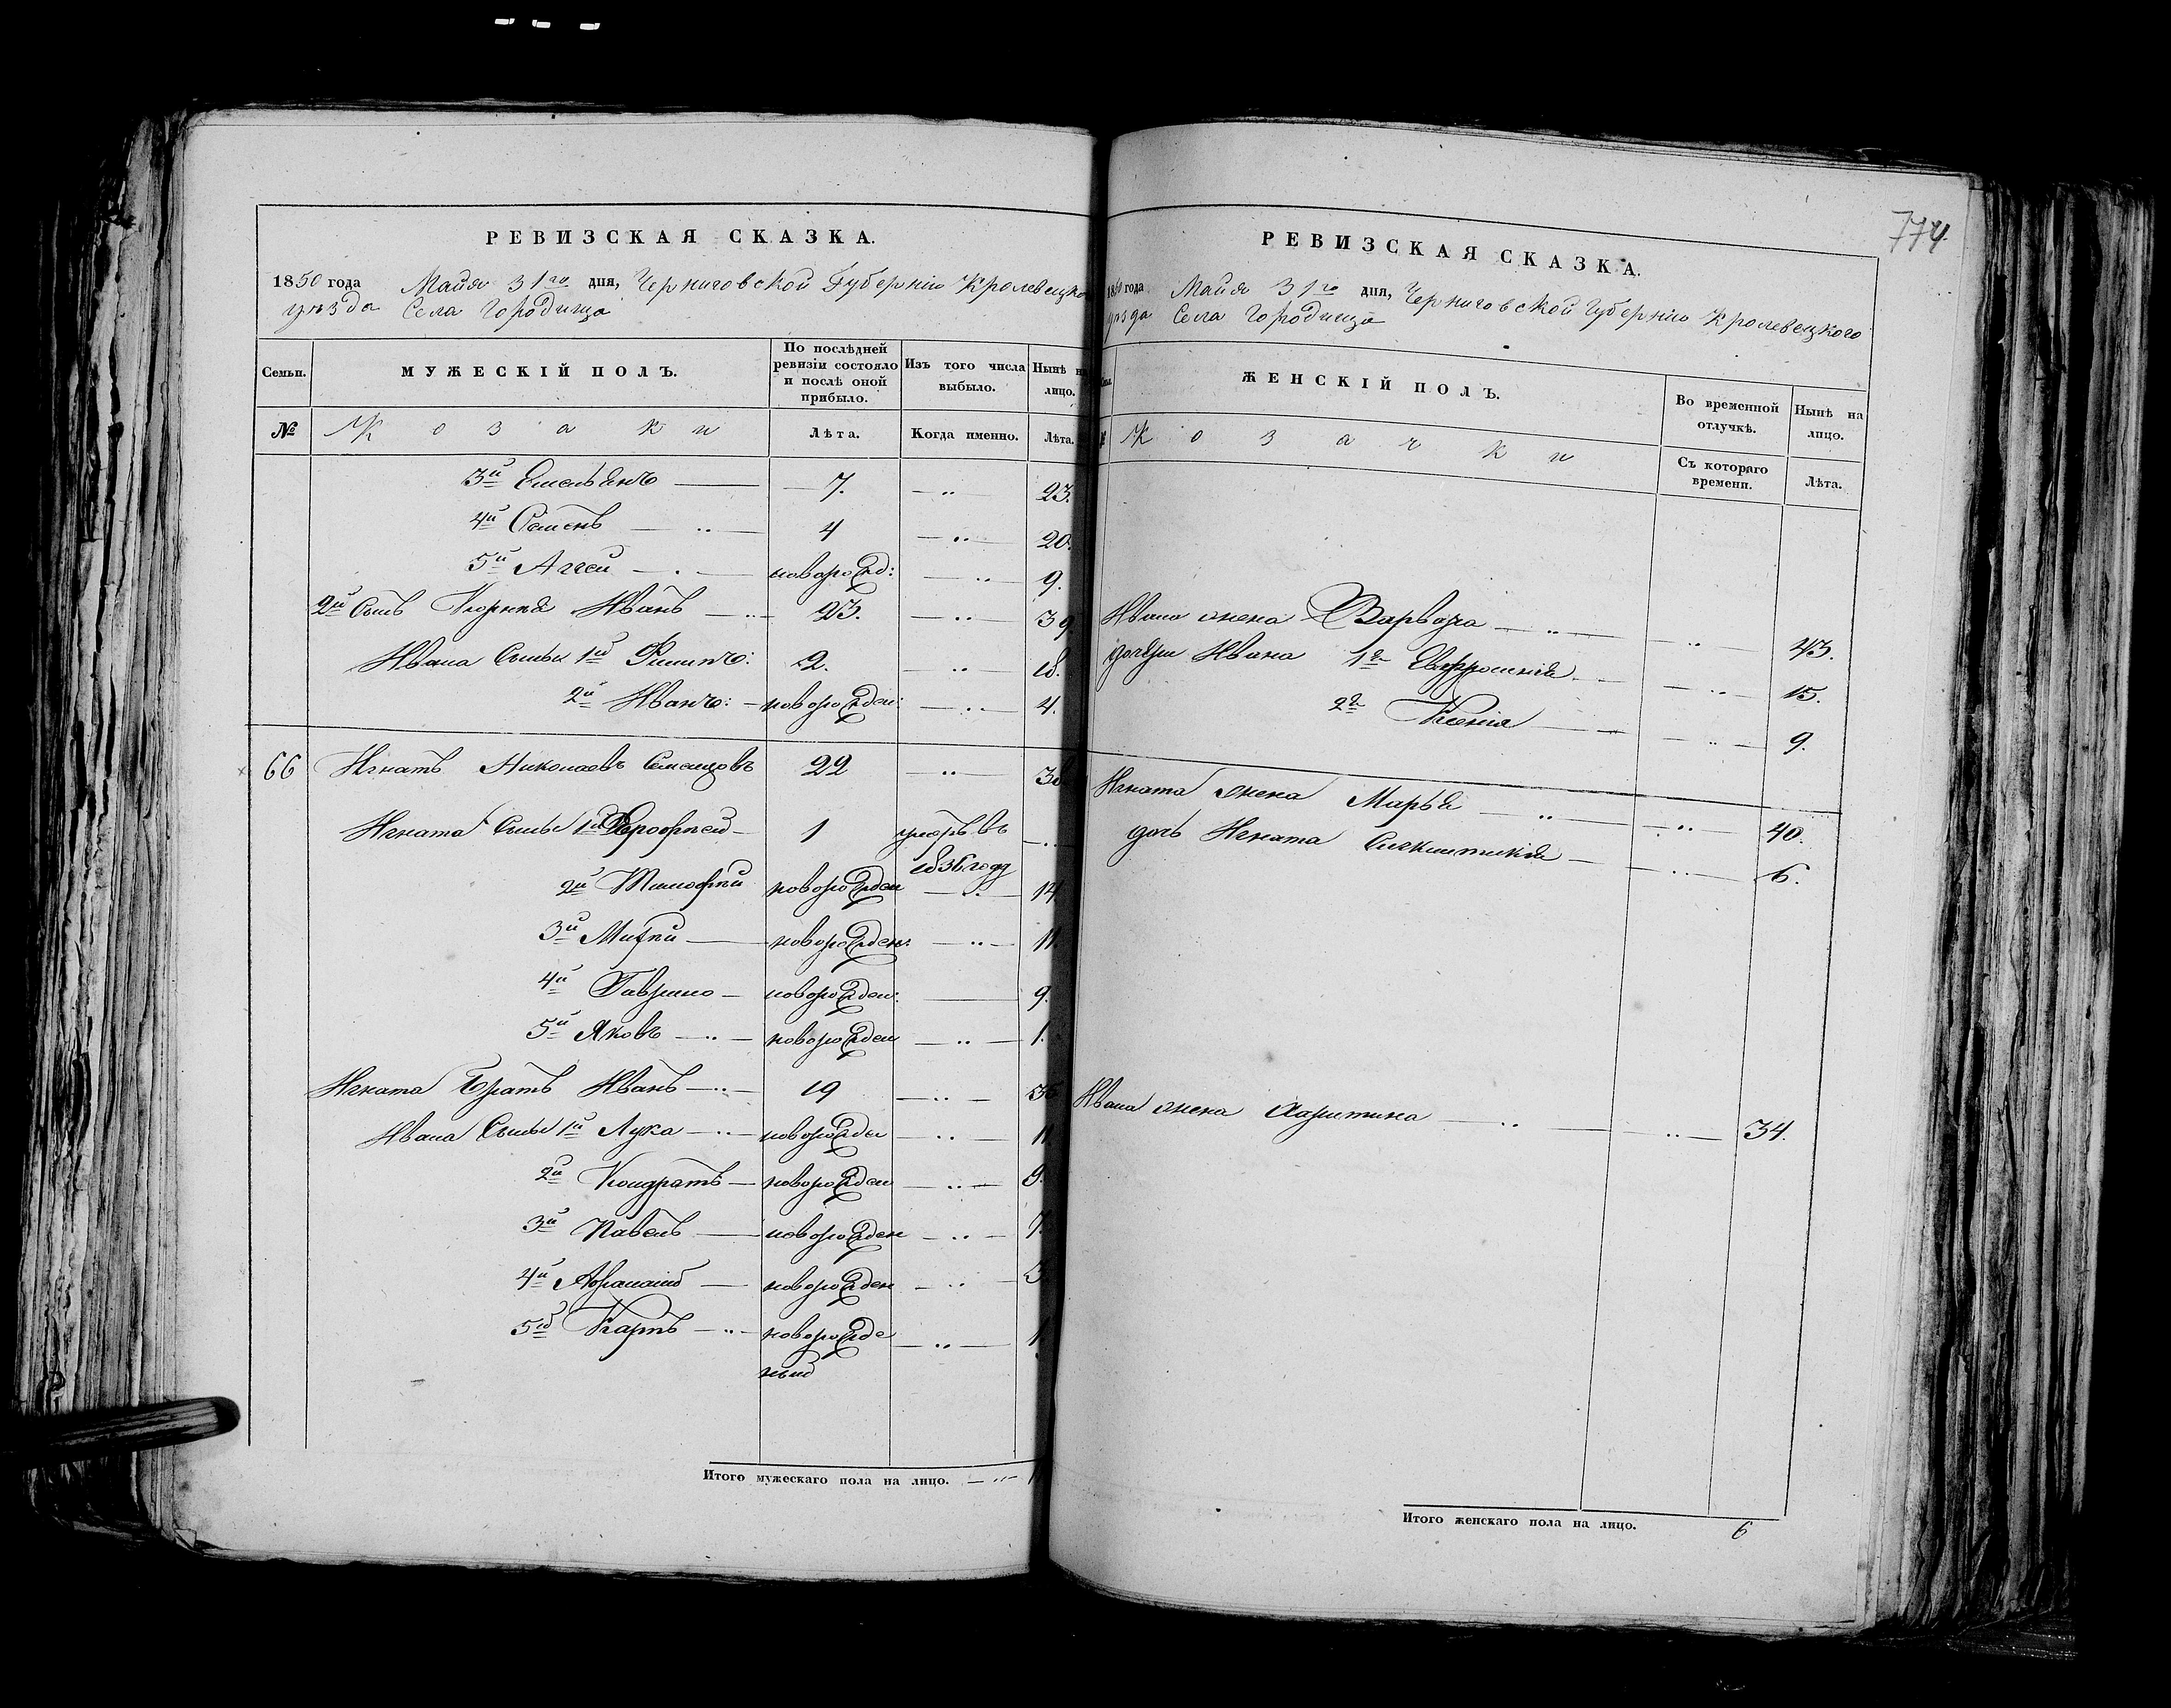 РЕВИЗСКАЯ СКАЗКА.
1850 года Майя 31го дня, Черниговской Губерніи Кролевецко
уѣзда Села Городища
Семьи.
МУЖЕСКІЙ ПОЛЪ.
По послѣдней ревизіи состояло и послѣ оной прибыло.
Изъ того числа выбыло.
Нынѣ на лицо.
№ Козаки Лѣта. Когда именно. Лѣта.
3й Емельянъ 7. 23.
4й Семенъ 4 20.
5й Аггей новорожд: 9.
2й Сынъ Корнея Иванъ 23. 39.
Ивана Сыны 1й Филипъ: 2. 18.
2й Иванъ: новорожден: 4.
66 Игнатъ Николаевъ 22 38
Игната Сыны 1й 1 умеръ въ
1836 году
2й Тимофей новорожден 14
3й новорожден: 11
4й Гаврило новорожден: 9.
5й Яковъ новорожден 1.
Игната Братъ Иванъ 19 35
Ивана Сыны 1й Лука новорожде 11
2й Кондратъ новорожден 9.
3й Павелъ новорожден 7.
4й Афанасій новорожден 3
5й Карпъ новорожде 1
ный
Итого мужескаго пола на лицо.
774.
РЕВИЗСКАЯ СКАЗКА.
1850 года Майя 31го дня, Черниговской Губерніи Кролевецкого
уѣзда Села Городища
ЖЕНСКІЙ ПОЛЪ.
Во временной отлучкѣ.
Нынѣ на лицо.
№ Козачки
Съ котораго времени.
Лѣта.
Ивана жена Варвара 43.
дочери Ивана 1я Евфросинія 15.
2я Ксенія 9.
Игната жена Марья 40.
дочь Игната 6.
Ивана жена Харитина 34.
Итого женскаго пола на лицо. 6